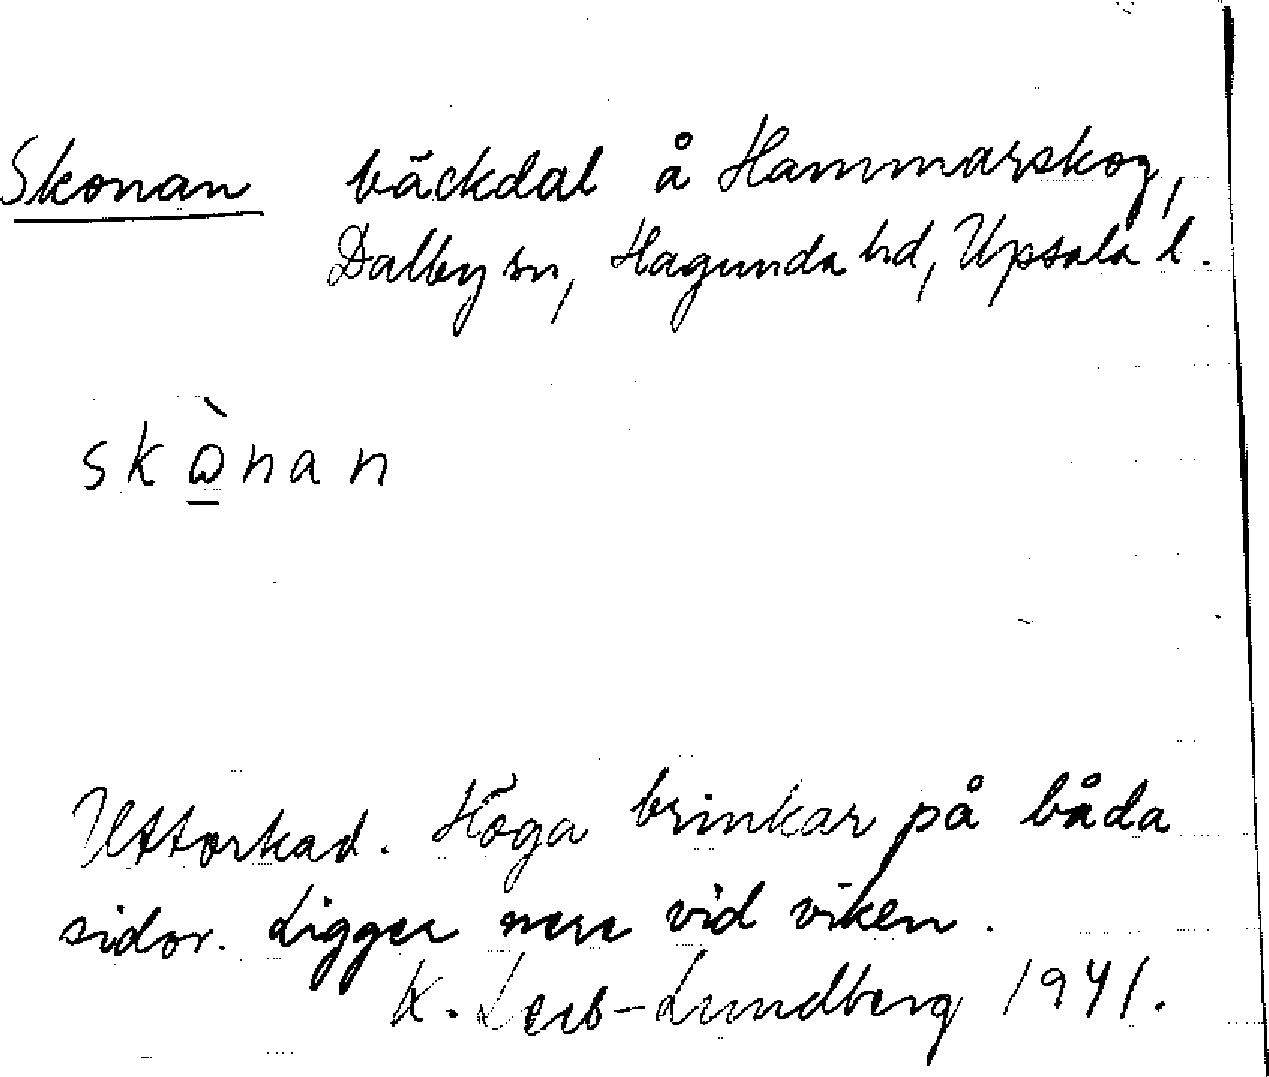 Skonan bäckdal å Hammarskog,
Dalby sn, Hagunda hd, Upsala l.
skò̱nan
Uttorkad. Höga brinkar på båda
sidor. Ligger nere vid viken.
K. Leeb-Lundberg 1941.